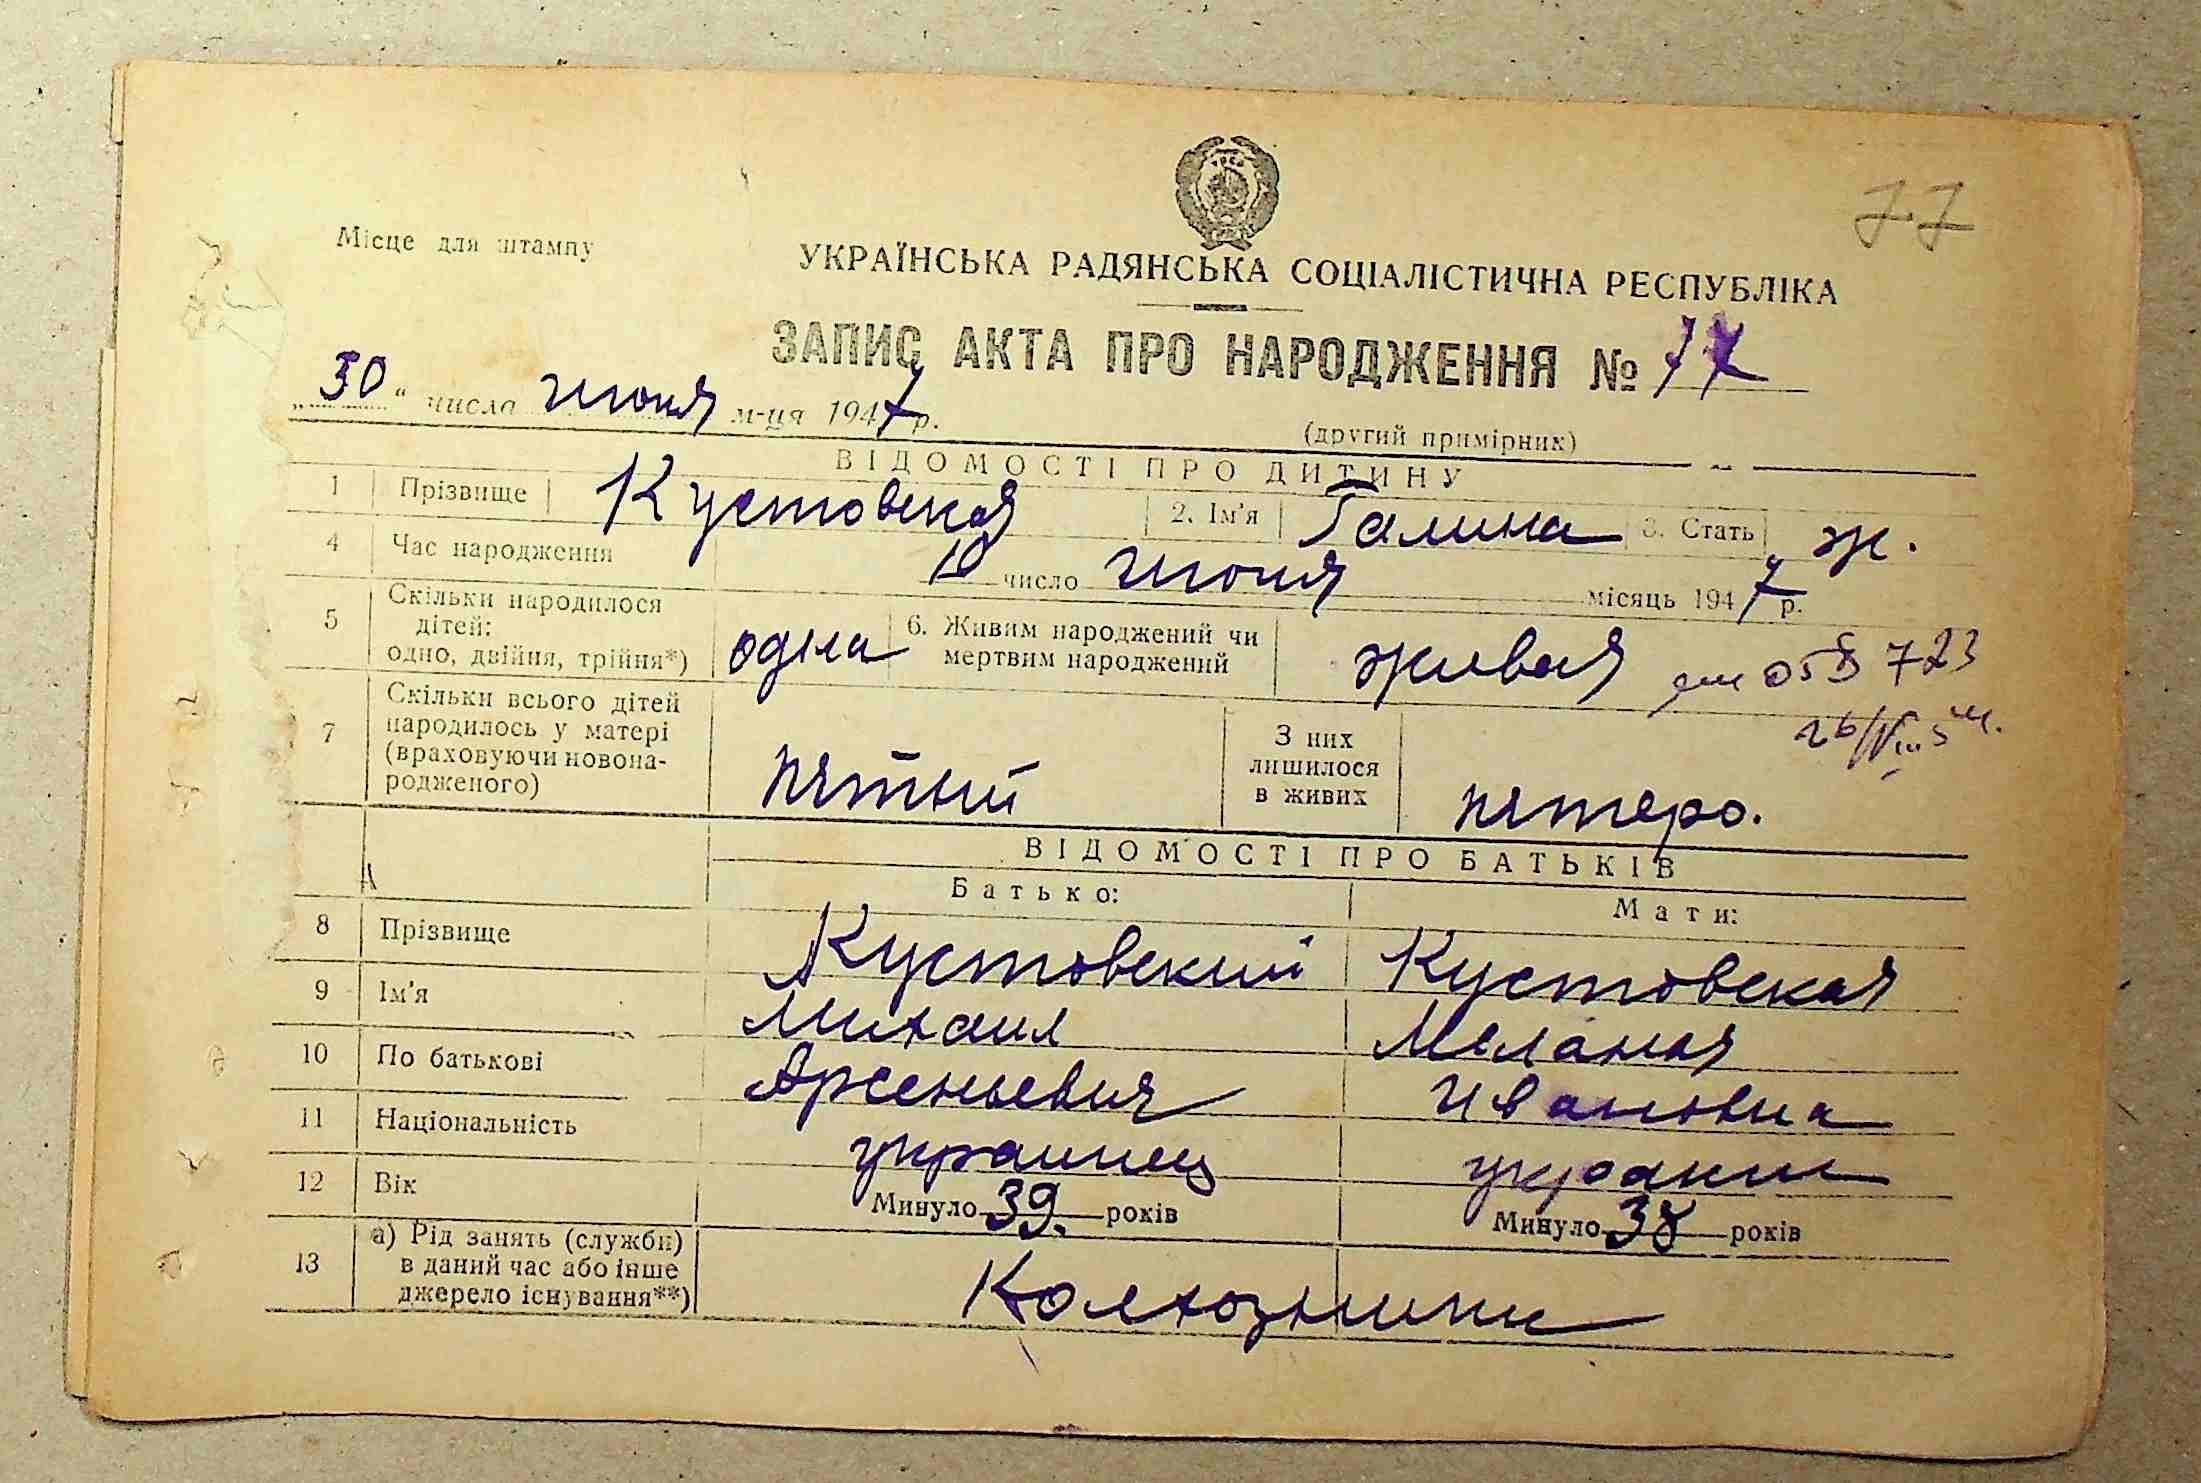 77
Місце для штампу
УКРАЇНСЬКА РАДЯНСЬКА СОЦІАЛІСТИЧНА РЕСПУБЛІКА
ЗАПИС АКТА ПРО НАРОДЖЕННЯ № 77
„30“ числа июня м-ця 1947 р.
(другий примірник)
ВІДОМОСТІ ПРО ДИТИНУ
1 Прізвище Кустовская 2. Ім'я Галина 3. Стать ж.
4 Час народження 10 число июня місяць 1947 р.
5 Скільки народилося
дітей:
одно, двійня, трійня*) одна 6. Живим народжений чи
мертвим народжений живая 723
7 Скільки всього дітей
народилось у матері
(враховуючи новона-
родженого) пятый З них
лишилося
в живих пятеро.
ВІДОМОСТІ ПРО БАТЬКІВ
Батько: Мати:
8 Прізвище Кустовский Кустовская
9 Ім'я Михаил Мелания
10 По батькові Арсеньевич Ивановна
11 Національність украинец украин
12 Вік Минуло 39. років Минуло 38 років
13 а) Рід занять (служби)
в даний час або інше
джерело існування**) Колхозники